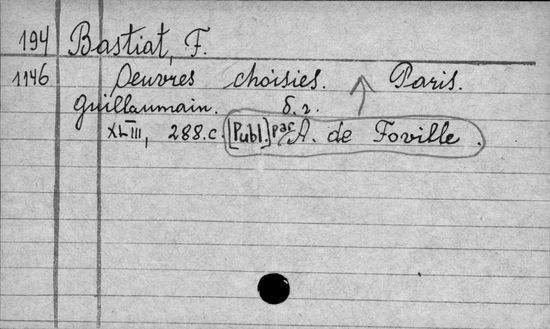 194 Bastiat, F.
1146 Oeuvres choisies. Paris.
Guillaumain. б. г.
XLIII, 288.c. [Publ.] par A. de Foville.